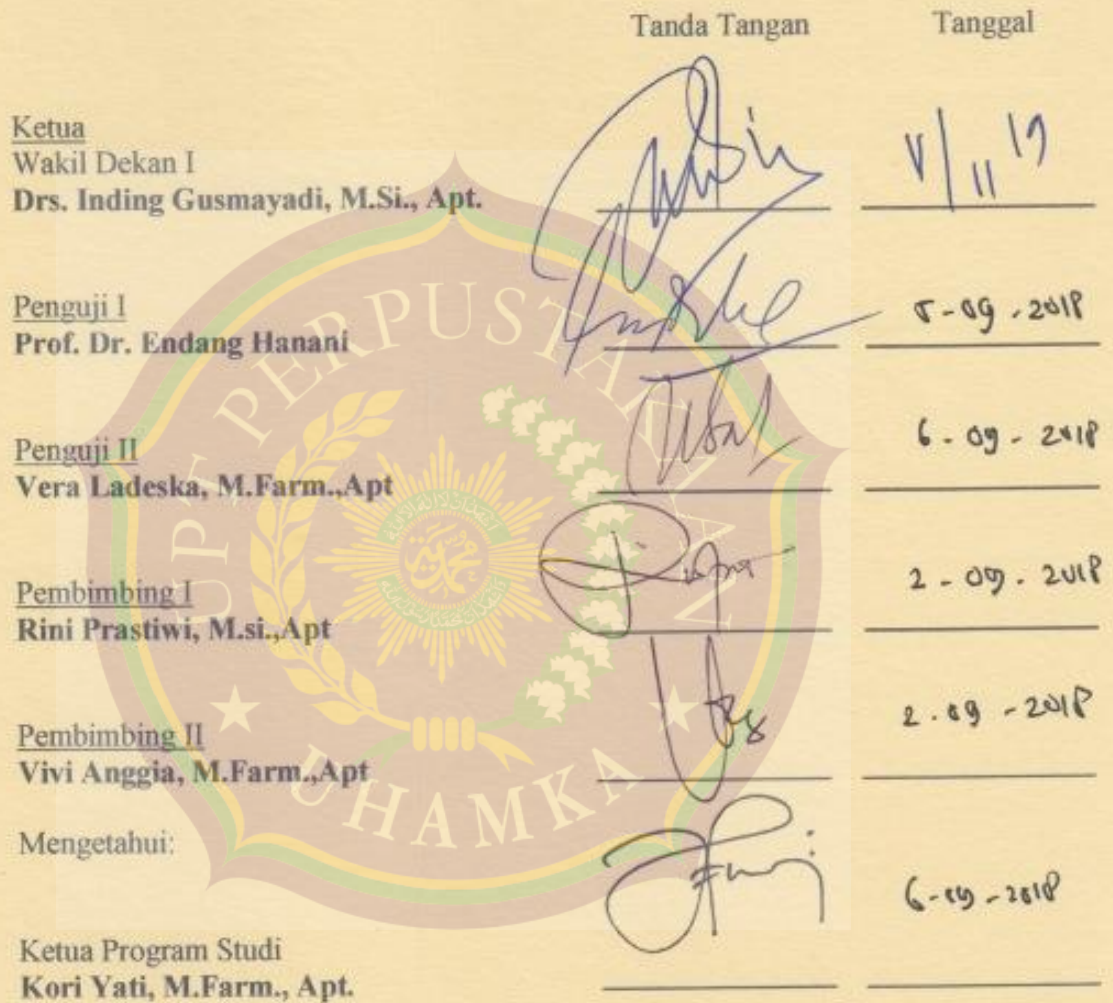 Tanda Tangan Tanggal
Ketua
Wakil Dekan I
Drs. Inding Gusmayadi, M.Si., Apt.
Penguji I
Prof. Dr. Endang Hanani
5-09-2018
Penguji II
Vera Ladeska, M.Farm.,Apt
6-09-2018
Pembimbing I
Rini Prastiwi, M.si.,Apt
2-09-2018
Pembimbing II
Vivi Anggia, M.Farm.,Apt
2-09-2018
Mengetahui:
6-09-2018
Ketua Program Studi
Kori Yati, M.Farm., Apt.
UPT PERPUSTAKAAN
UHAMKA